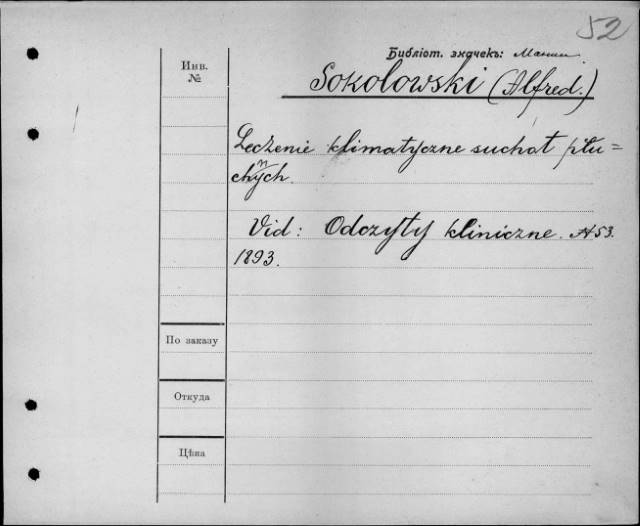 52
Библіот. значекъ:
Инв.
№
Sokolowski (Alfred.)
Leczenie klimatyczne suchot płu=
cnych.
Vid: Odczyty kliniczne. № 53.
1893.
По заказу
Откуда
Цѣна